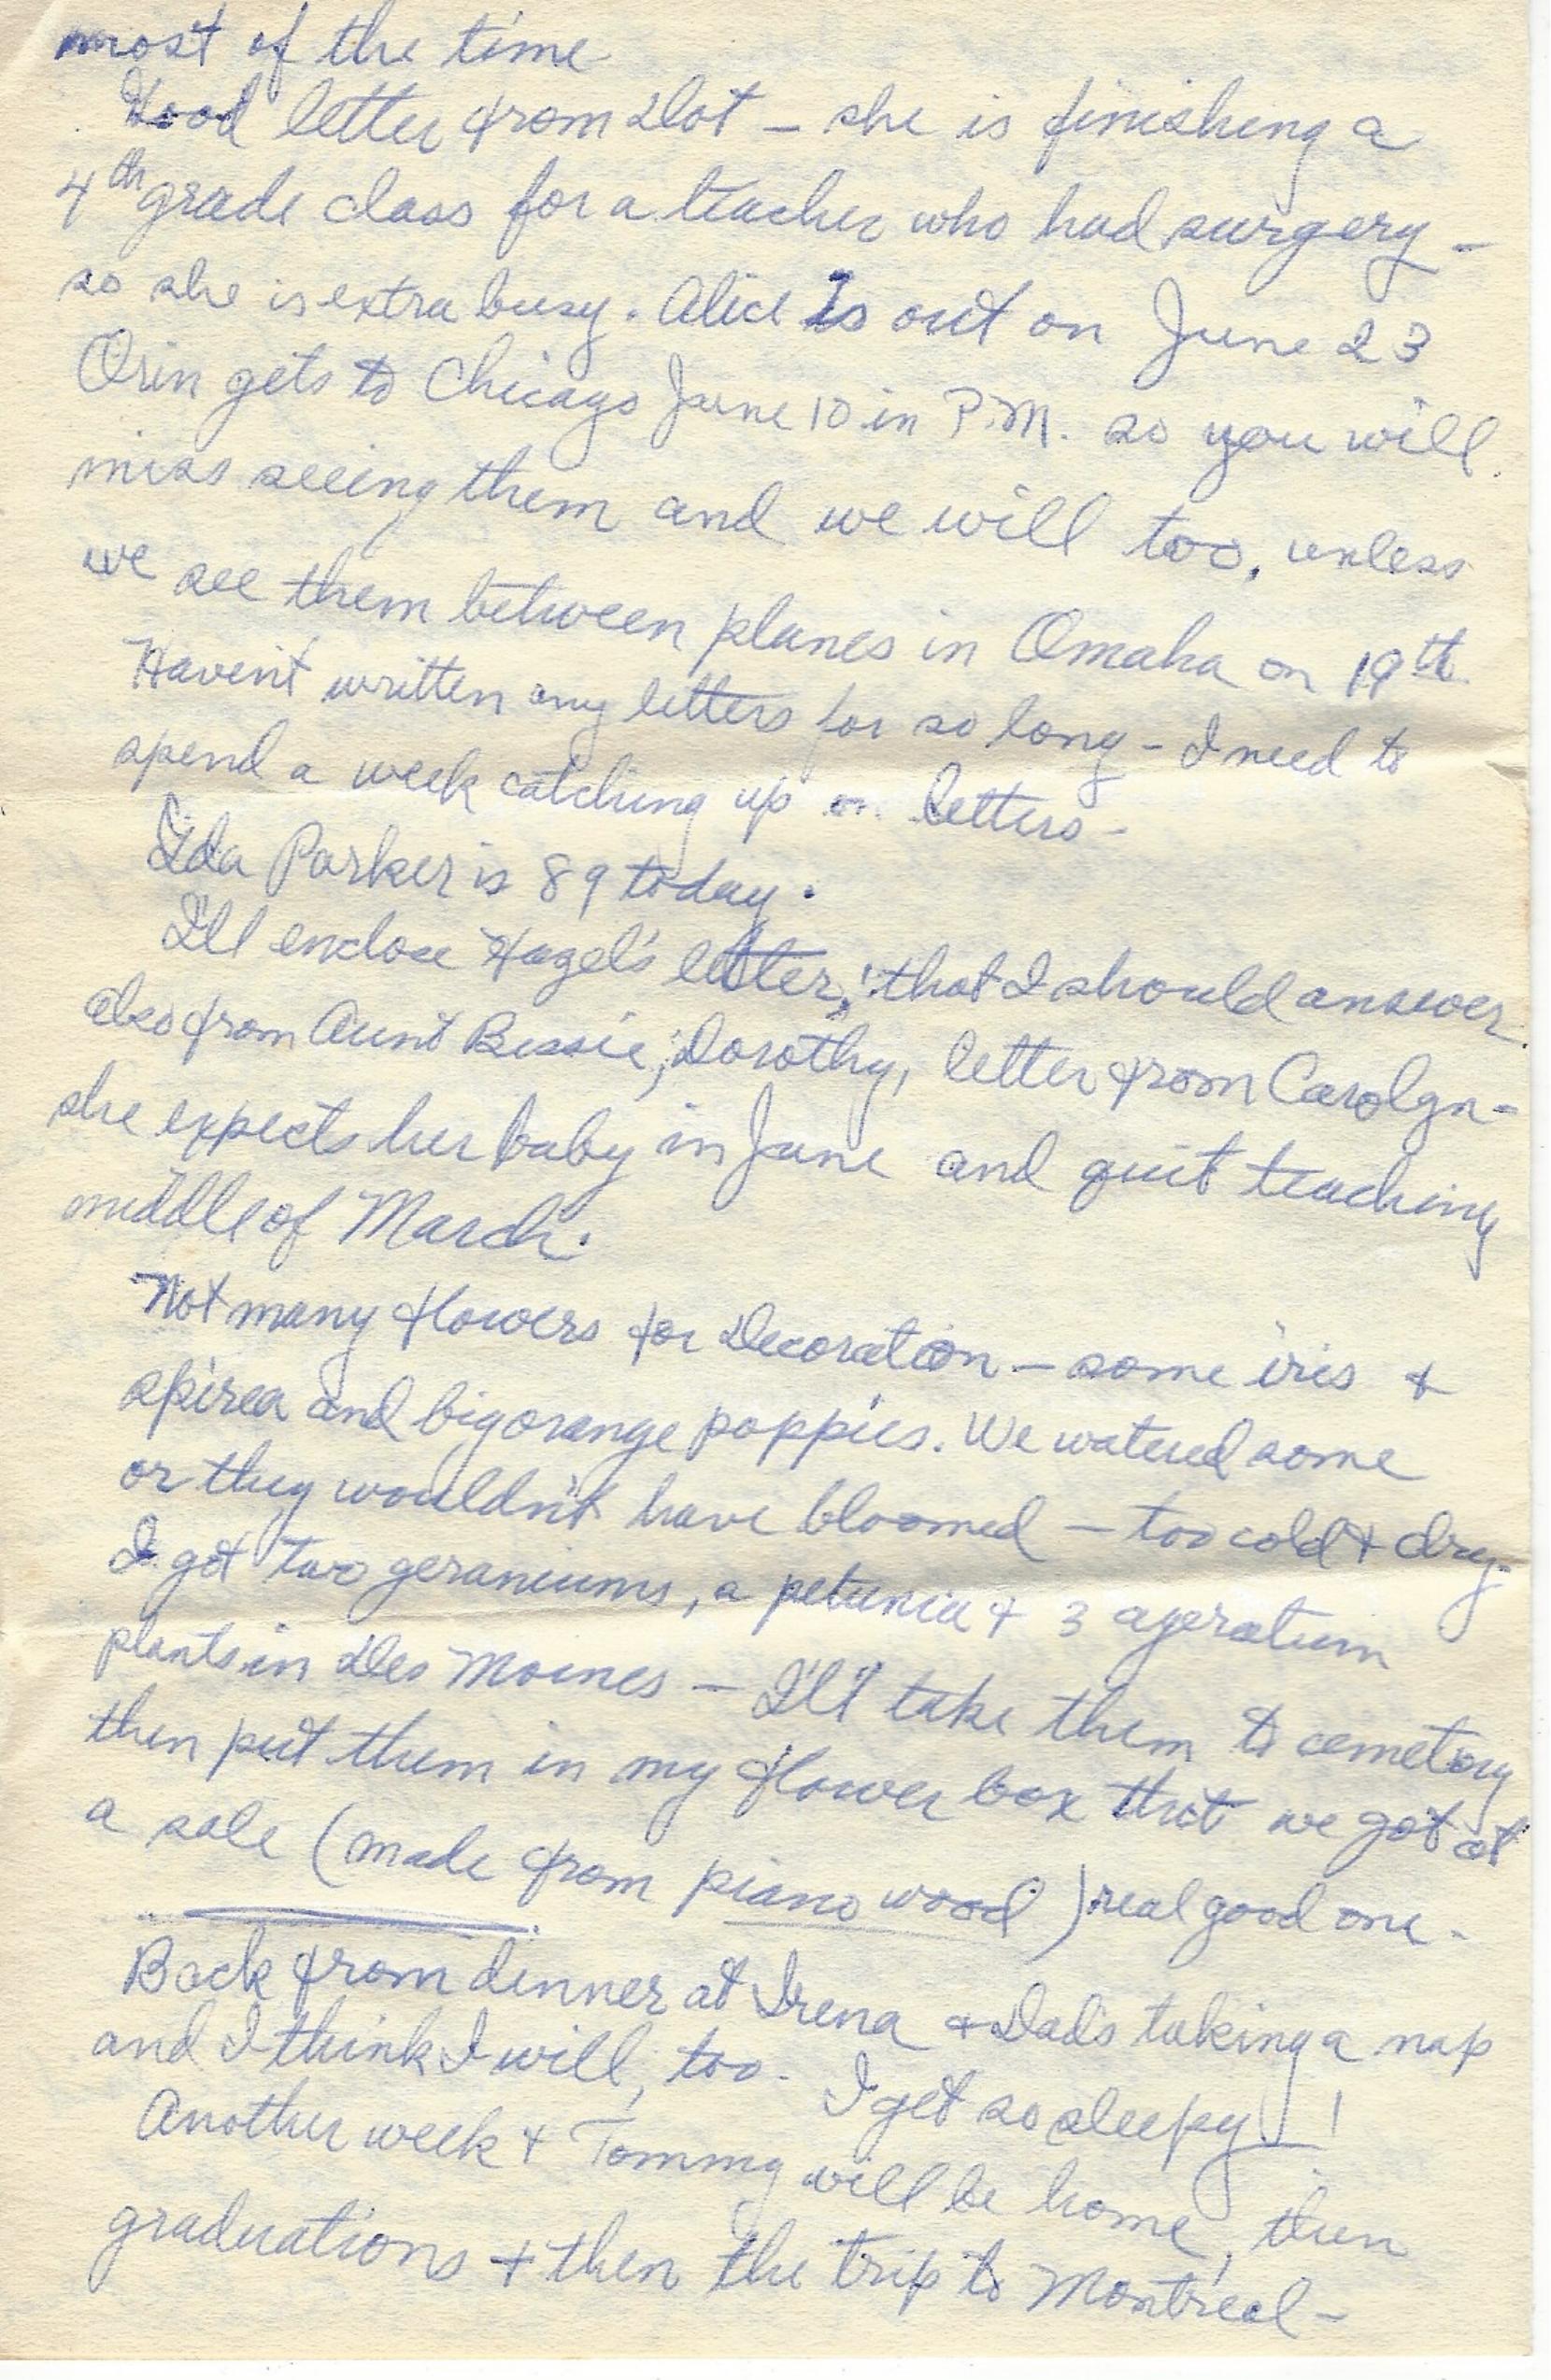 most of the time
Good letter from Dot - she is finishing a
4th grade class for a teacher who had surgery -
so she is extra busy. Alice is out on June 23
Orin gets to Chicago June 10 in P.M. so you will
miss seeing them and we will too, unless
we see them between planes in Omaha on 19th
Haven't written any letters for so long - I need to
spend a week catching up on letters -
Ida Parker is 89 today.
I'll enclose Hazel's letter, that I should answer
also from Aunt Bessie, Dorothy, letter from Carolyn -
she expects her baby in June and quit teaching
middle of March.
Not many flowers for Decoration - some iris +
spirea and big orange poppies. We watered some
or they wouldn't have bloomed - too cold + dry.
I got two geraniums, a petunia + 3 ageratum
plants in Des Moines - I'll take them to cemetery
then put them in my flower box that we got at
a sale (made from piano wood) real good one.
Back from dinner at Irena + Dad's taking a nap
and I think I will, too. I get so sleepy!
Another week + Tommy will be home, then
graduations + then the trip to Montreal -